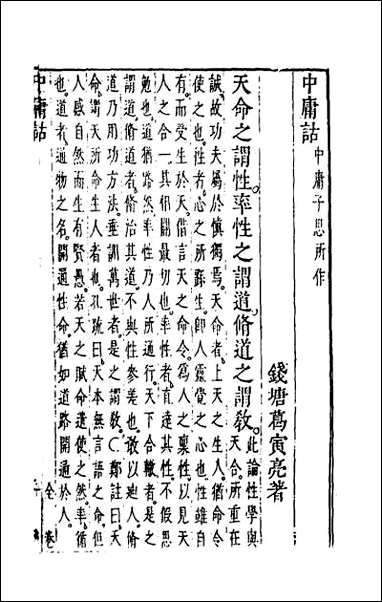 中庸詁 中庸子思所作
錢塘葛寅亮著
天命之謂性。率性之謂道。脩道之謂敎。此論性學與天合。所重在
誠。故功夫屬於慎獨焉。天命者。上天之生人。猶命令
使之也。性者。心之所繇生。即人靈覺之心也。性雖自
有。而受生於天。偕言天之命令。爲人之稟性。以見天
人之合一。其相關最切也。率性者。直達其性。不假思
勉也。道猶路然。率性乃人所通行。天下合轍者。是之
謂道。脩道者。脩治其道。不與性參差也。敎以廸人。脩
道乃用功方法。垂訓萬世者。是之謂敎。○鄭註曰。天
命。謂天所命生人者也。孔䟽曰。天本無言語之命。但
人感自然而生。有賢愚。若天之賦命遣使之然。率。循
也。道者。通物之名。開通性命。猶如道路開通於人。
中庸詁
全卷